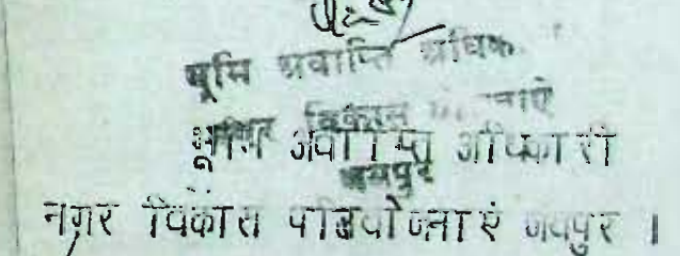 भूमि अवाप्ति अधिक
नगर विकास
भूमि अवाप्ति अधिकारी
जयपुर
नगर विकास परियोजनाएं जयपुर ।